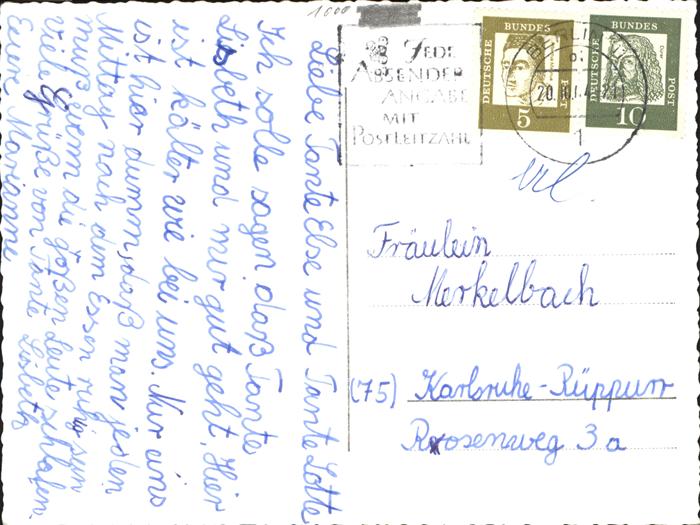 1000
Liebe Tante Else und Tante Lotte
Ich solle sagen daß Tante
Lisbeth und mir gut geht. Hier
ist kälter wie bei uns. Nur uns
ist har dumm, daß man jeden
Mittag nach dem Essen ruhig sein
muß, wenn die großen Leute schlafen.
Viele Grüße von Tante Lisbeth
Eure Marianne
JEDE
ABSENDER
ANGABE
MIT
POSTLEITZAHL
DEUTSCHE BUNDESPOST
5
DEUTSCHE BUNDESPOST
10
BERLIN
1
Fräulein
Merkelbach
(75) Karlsruhe-Rüppurr
Rosenweg 3a